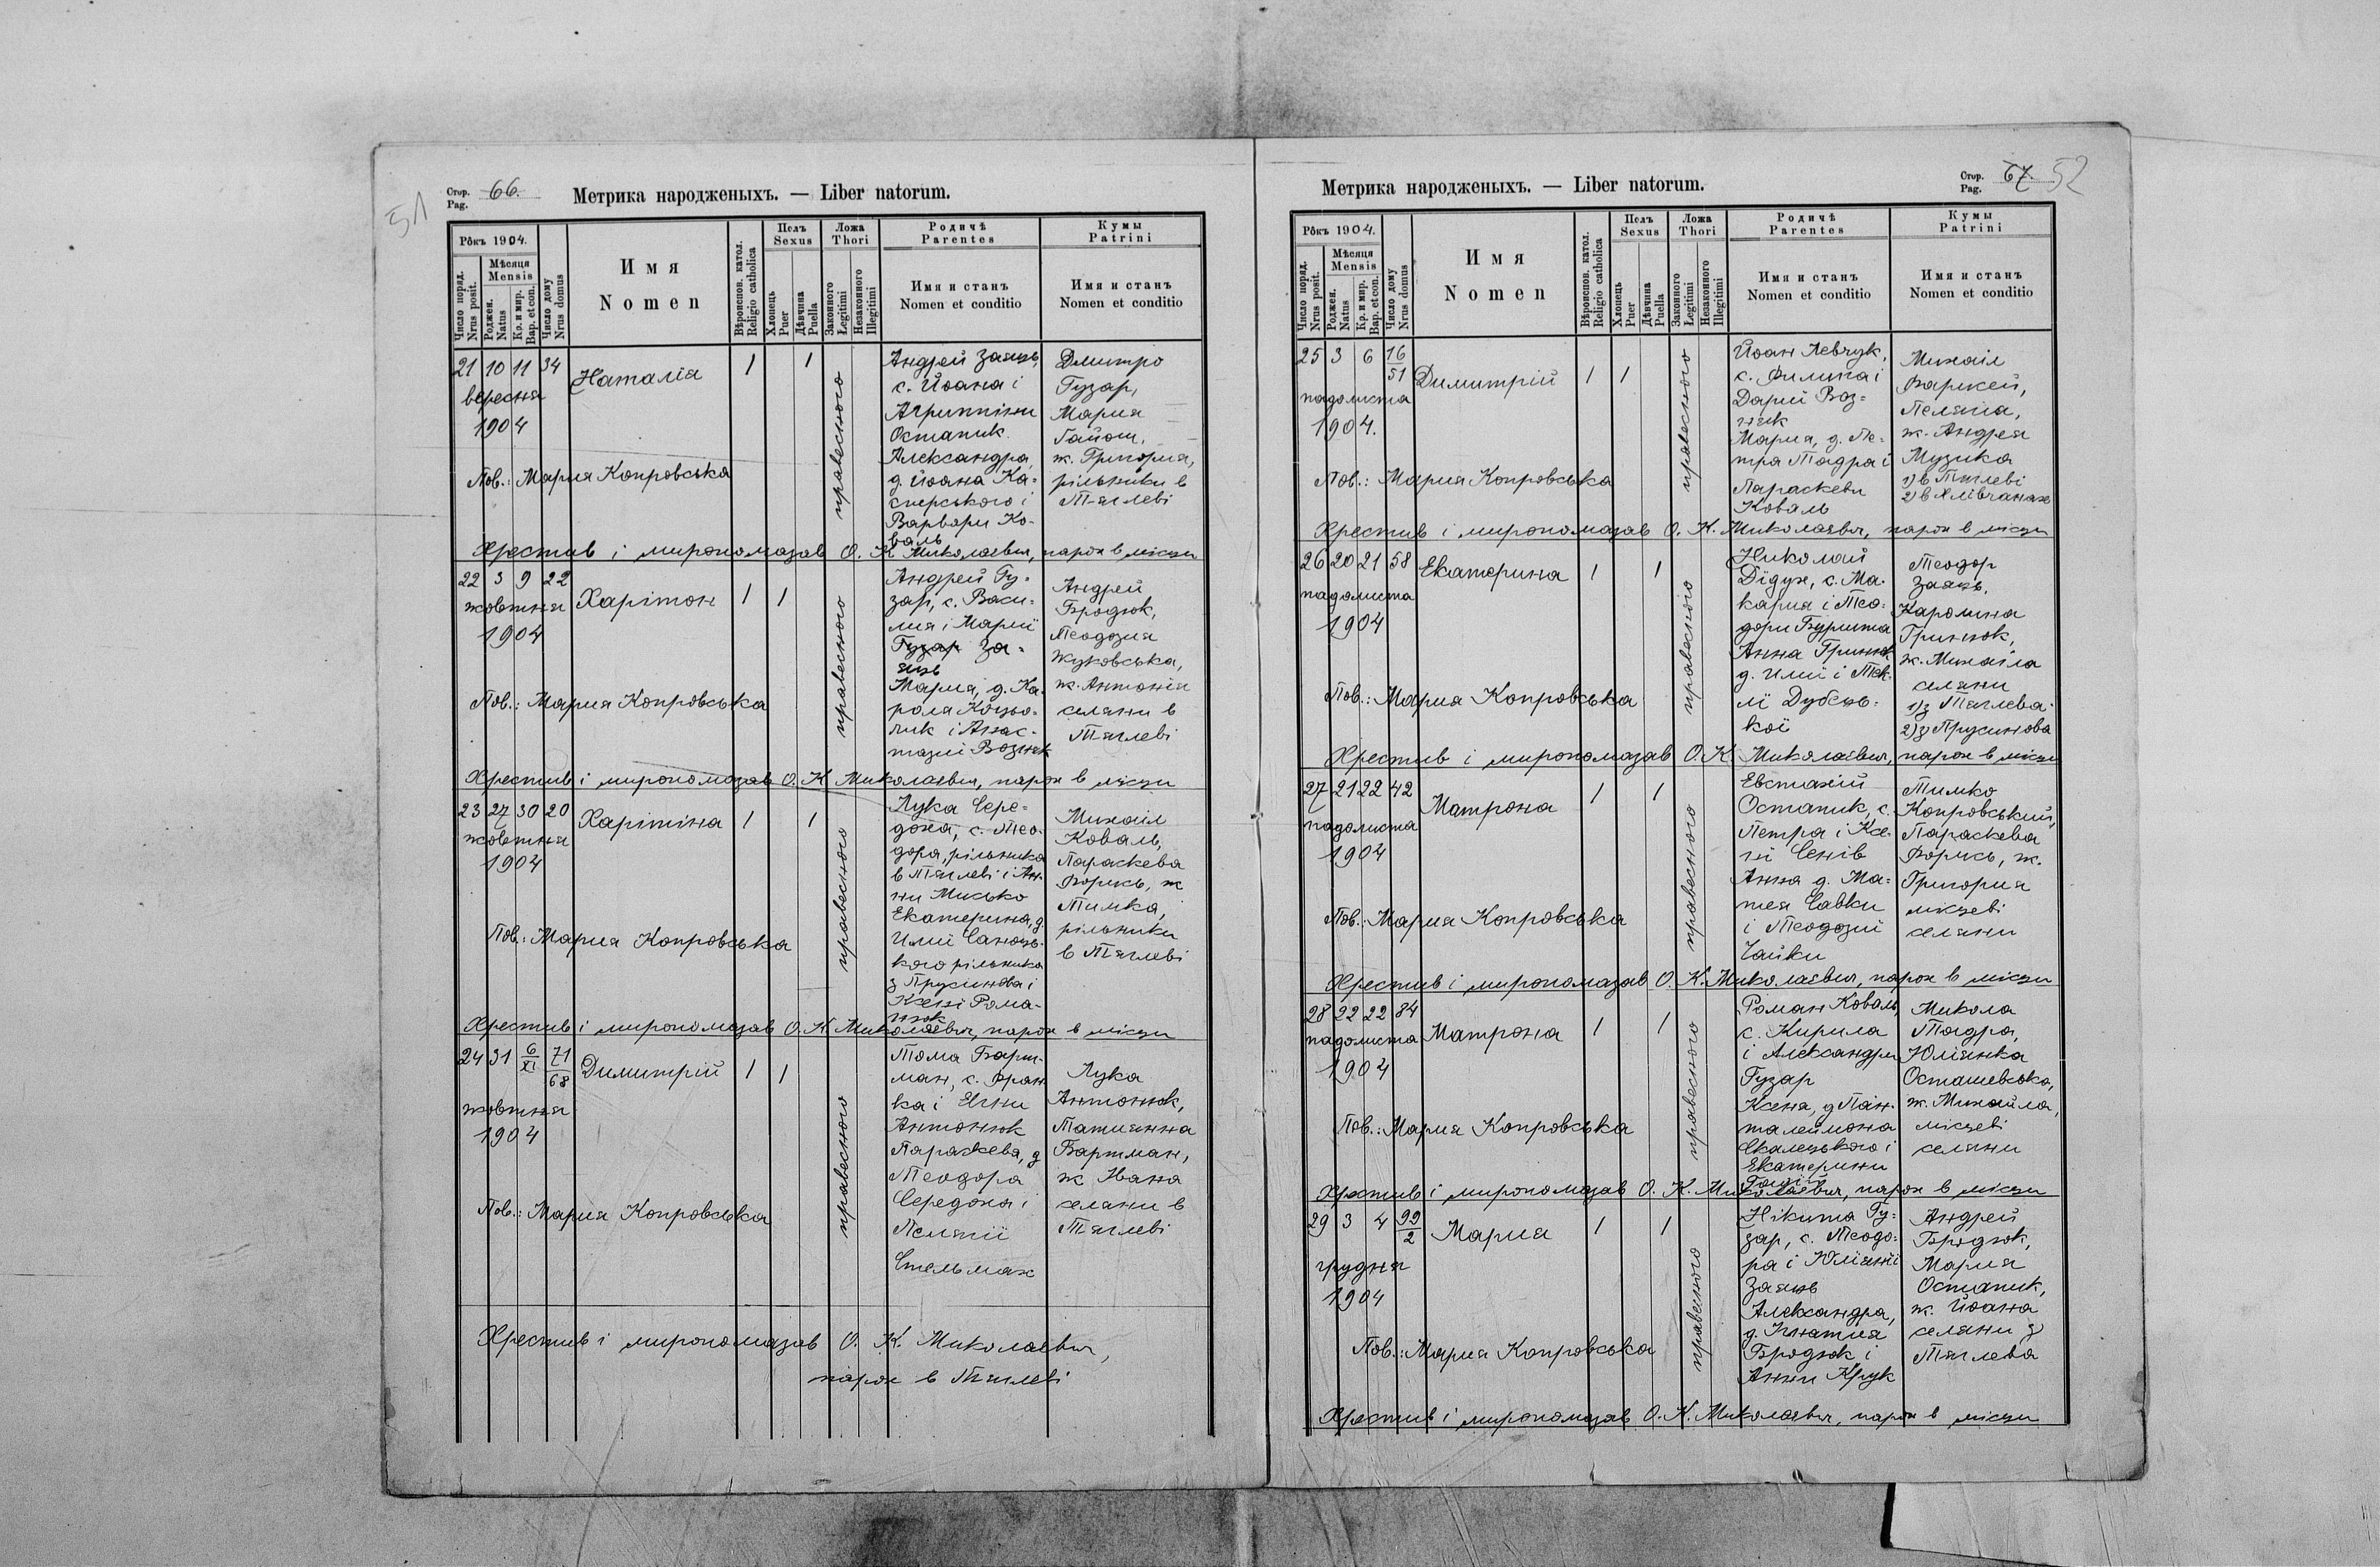 51
Стор. Pag. 66.
Метрика народженыхъ. — Liber natorum.
Рôкъ 1904.
Число поряд. Nrus posit.
Мѣсяця Mensis
Роджен. Natus
Кр. и мир. Bap. et con.
Число дому Nrus domus
Имя
Nomen
Вѣроиспов. катол. Religio catholica
Полъ Sexus
Хлопець Puer
Дѣвчина Puella
Ложа Thori
Законного Legitimi
Незаконного Illegitimi
Родичѣ
Parentes
Имя и станъ
Nomen et conditio
Кумы
Patrini
Имя и станъ
Nomen et conditio
21 10 11 34
вересня
1904
Наталія
1 1
правесного
Андрей Заяць,
с. Йоана і
Агриппіни
Остапик.
Александра,
д. Йоана Ка-
сперського і
Варвари Ко-
валь
Дмитро
Гузар,
Мария
Гайош,
ж. Григория,
рільники в
Тяглеві
Пов.: Мария Копровська
Хрестив і миропомазав О. К. Миколаєвич, парох в місци
22 3 9 22
жовтня
1904
Харітон
1 1
правесного
Андрей Гу-
зар, с. Васи-
лия і Марії
Гузар За-
яць
Мария, д. Ка-
роля Коцьо-
лик і Анас-
тазиї Возняк
Андрей
Бродюк,
Теодозия
Жуковська,
ж. Антонія
селяни в
Тяглеві
Пов.: Мария Копровська
Хрестив і миропомазав О. К. Миколаєвич, парох в місци
23 27 30 20
жовтня
1904
Харітіна
1 1
правесного
Лука Сере-
доха, с. Тео-
дора, рільника
в Тяглеві і Ан-
ни Мисько
Екатерина, д.
Илиї Саноць-
кого рільника
з Прусинова і
Ксені Рома-
нюк
Михаіл
Коваль,
Параскева
Ворись, ж
Тимка,
рільники
в Тяглеві
Пов.: Мария Копровська
Хрестив і миропомазав О. К. Миколаєвич, парох в місци
24 31 6/XI 71/68
жовтня
1904
Димитрій
1 1
правесного
Тома Барт-
ман, с. Фран
ка і Евгни
Антонюк
Параскева, д
Теодора
Середоха і
Пелягії
Стельмах
Лука
Антонюк,
Татиянна
Бартман,
ж Ивана
селяни в
Тяглеві
Пов.: Мария Копровська
Хрестив і миропомазав О. К. Миколаєвич,
парох в Тяглеві
Метрика народженыхъ. — Liber natorum.
Стор. Pag. 67. 52
Рôкъ 1904.
Число поряд. Nrus posit.
Мѣсяця Mensis
Роджен. Natus
Кр. и мир. Bap. et con.
Число дому Nrus domus
Имя
Nomen
Вѣроиспов. катол. Religio catholica
Полъ Sexus
Хлопець Puer
Дѣвчина Puella
Ложа Thori
Законного Legitimi
Незаконного Illegitimi
Родичѣ
Parentes
Имя и станъ
Nomen et conditio
Кумы
Patrini
Имя и станъ
Nomen et conditio
25 3 6 16/51
падолиста
1904.
Димитрій
1 1
правесного
Йоан Левчук,
с. Филипа і
Дариї Воз-
няк
Мария, д. Пе-
тра Тадра і
Параскеви
Коваль
Михаіл
Фаркей,
Пелягія,
ж. Андрея
Музика
1) в Тяглеві
2) в Хлівчанах
Пов.: Мария Копровська
Хрестив і миропомазав О. К. Миколаєвич, парох в місци
26 20 21 58
падолиста
1904
Екатерина
1 1
правесного
Николай
Дідух, с. Ма-
кария і Тео-
дори Бурита
Анна Гринюк
д. Илиї і Тек-
лі Дубець-
кої
Теодор
Заяць,
Каролина
Гринюк,
ж. Михаіла
селяни
1) з Тяглева
2) з Прусинова
Пов.: Мария Копровська
Хрестив і миропомазав О. К. Миколаєвич, парох в місци
27 21 22 42
падолиста
1904
Матрона
1 1
правесного
Евстахій
Остапик, с.
Петра і Ксе-
ні Сенів
Анна д. Ма-
тея Савки
і Теодозиї
Чайки
Тимко
Копровський,
Параскева
Ворись, ж.
Григория
місцеві
селяни
Пов.: Мария Копровська
Хрестив і миропомазав О. К. Миколаєвич, парох в місци
28 22 22 84
падолиста
1904
Матрона
1 1
правесного
Роман Коваль,
с. Кирила
і Александри
Гузар
Ксеня, д Пан-
талеймона
Скалецького і
Екатерини
Микола
Тадра,
Юліянна
Осташевська,
ж. Михайла,
місцеві
селяни
Пов.: Мария Копровська
Хрестив і миропомазав О. К. Миколаєвич, парох в місци
29 3 4 99/2
грудня
1904
Мария
1 1
правесного
Нікита Гу-
зар, с. Теодо-
ра і Юліянни
Заяць
Александра,
д. Игнатия
Бродюк і
Анни Крук
Андрей
Бродюк,
Мария
Остапик,
ж. Йоана
селяни з
Тяглева
Пов.: Мария Копровська
Хрестив і миропомазав О. К. Миколаєвич, парох в місци